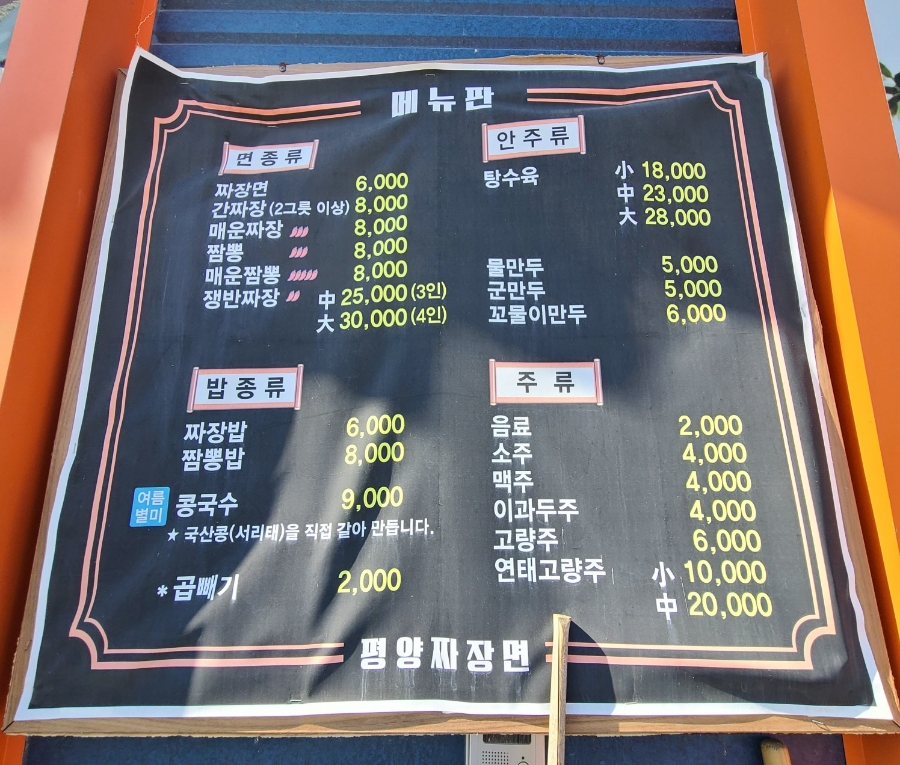 메뉴판
면종류
짜장면 6,000
간짜장 (2그릇 이상) 8,000
매운짜장 8,000
짬뽕 8,000
매운짬뽕 8,000
쟁반짜장 中 25,000 (3인)
大 30,000 (4인)
안주류
탕수육 小 18,000
中 23,000
大 28,000
물만두 5,000
군만두 5,000
꼬물이만두 6,000
밥종류
짜장밥 6,000
짬뽕밥 8,000
여름
별미
콩국수 9,000
★ 국산콩(서리태)을 직접 갈아 만듭니다.
* 곱빼기 2,000
주류
음료 2,000
소주 4,000
맥주 4,000
이과두주 4,000
고량주 6,000
연태고량주 小 10,000
中 20,000
평양짜장면